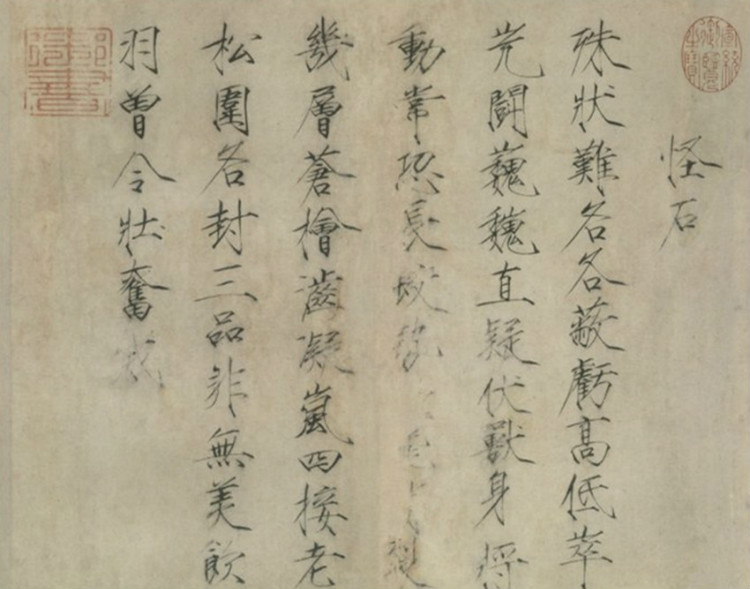 怪石
殊狀難名各蔽虧高低崒
屼鬪巍巍直疑伏獸身將
動常恐長蛟勢
幾層蒼檜凝嵐四接老
松圍各封三品非無美飲
羽曾令壯奮